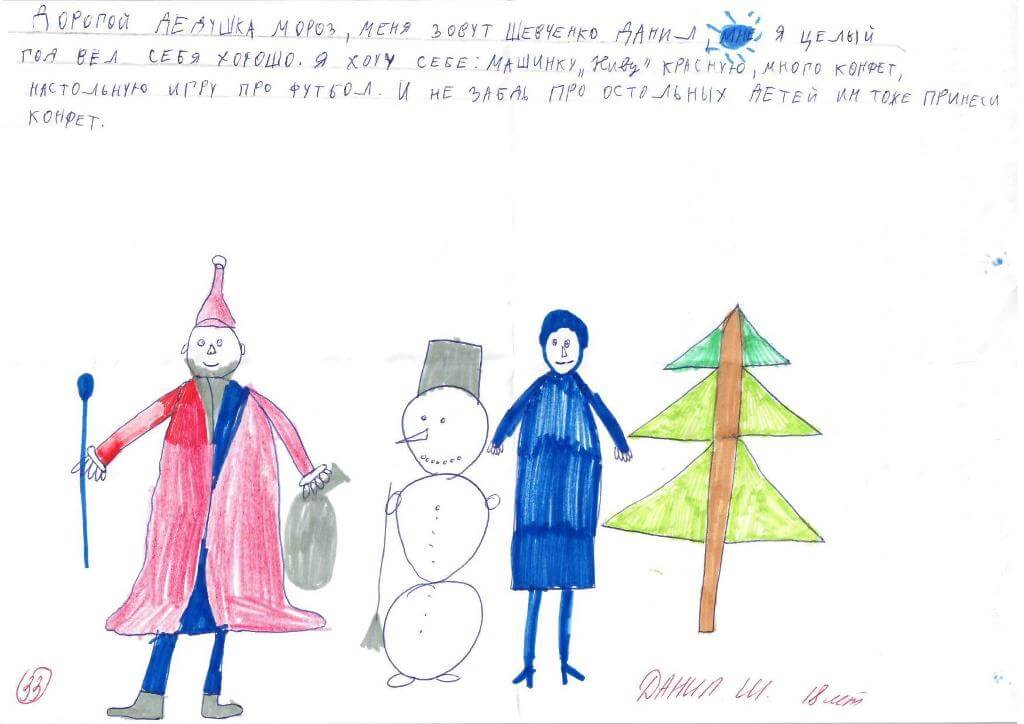 ДОРОГОЙ ДЕДУШКА МОРОЗ, МЕНЯ ЗОВУТ ШЕВЧЕНКО ДАНИЛ, МНЕ Я ЦЕЛЫЙ
ГОД ВЁЛ СЕБЯ ХОРОШО. Я ХОЧУ СЕБЕ: МАШИНКУ „Ниву" КРАСНУЮ, МНОГО КОНФЕТ,
НАСТОЛЬНУЮ ИГРУ ПРО ФУТБОЛ. И НЕ ЗАБДЬ ПРО ОСТОЛЬНЫХ ДЕТЕЙ ИМ ТОЖЕ ПРИНЕСИ
КОНФЕТ.
33
ДАНИЛ Ш. 18 лет